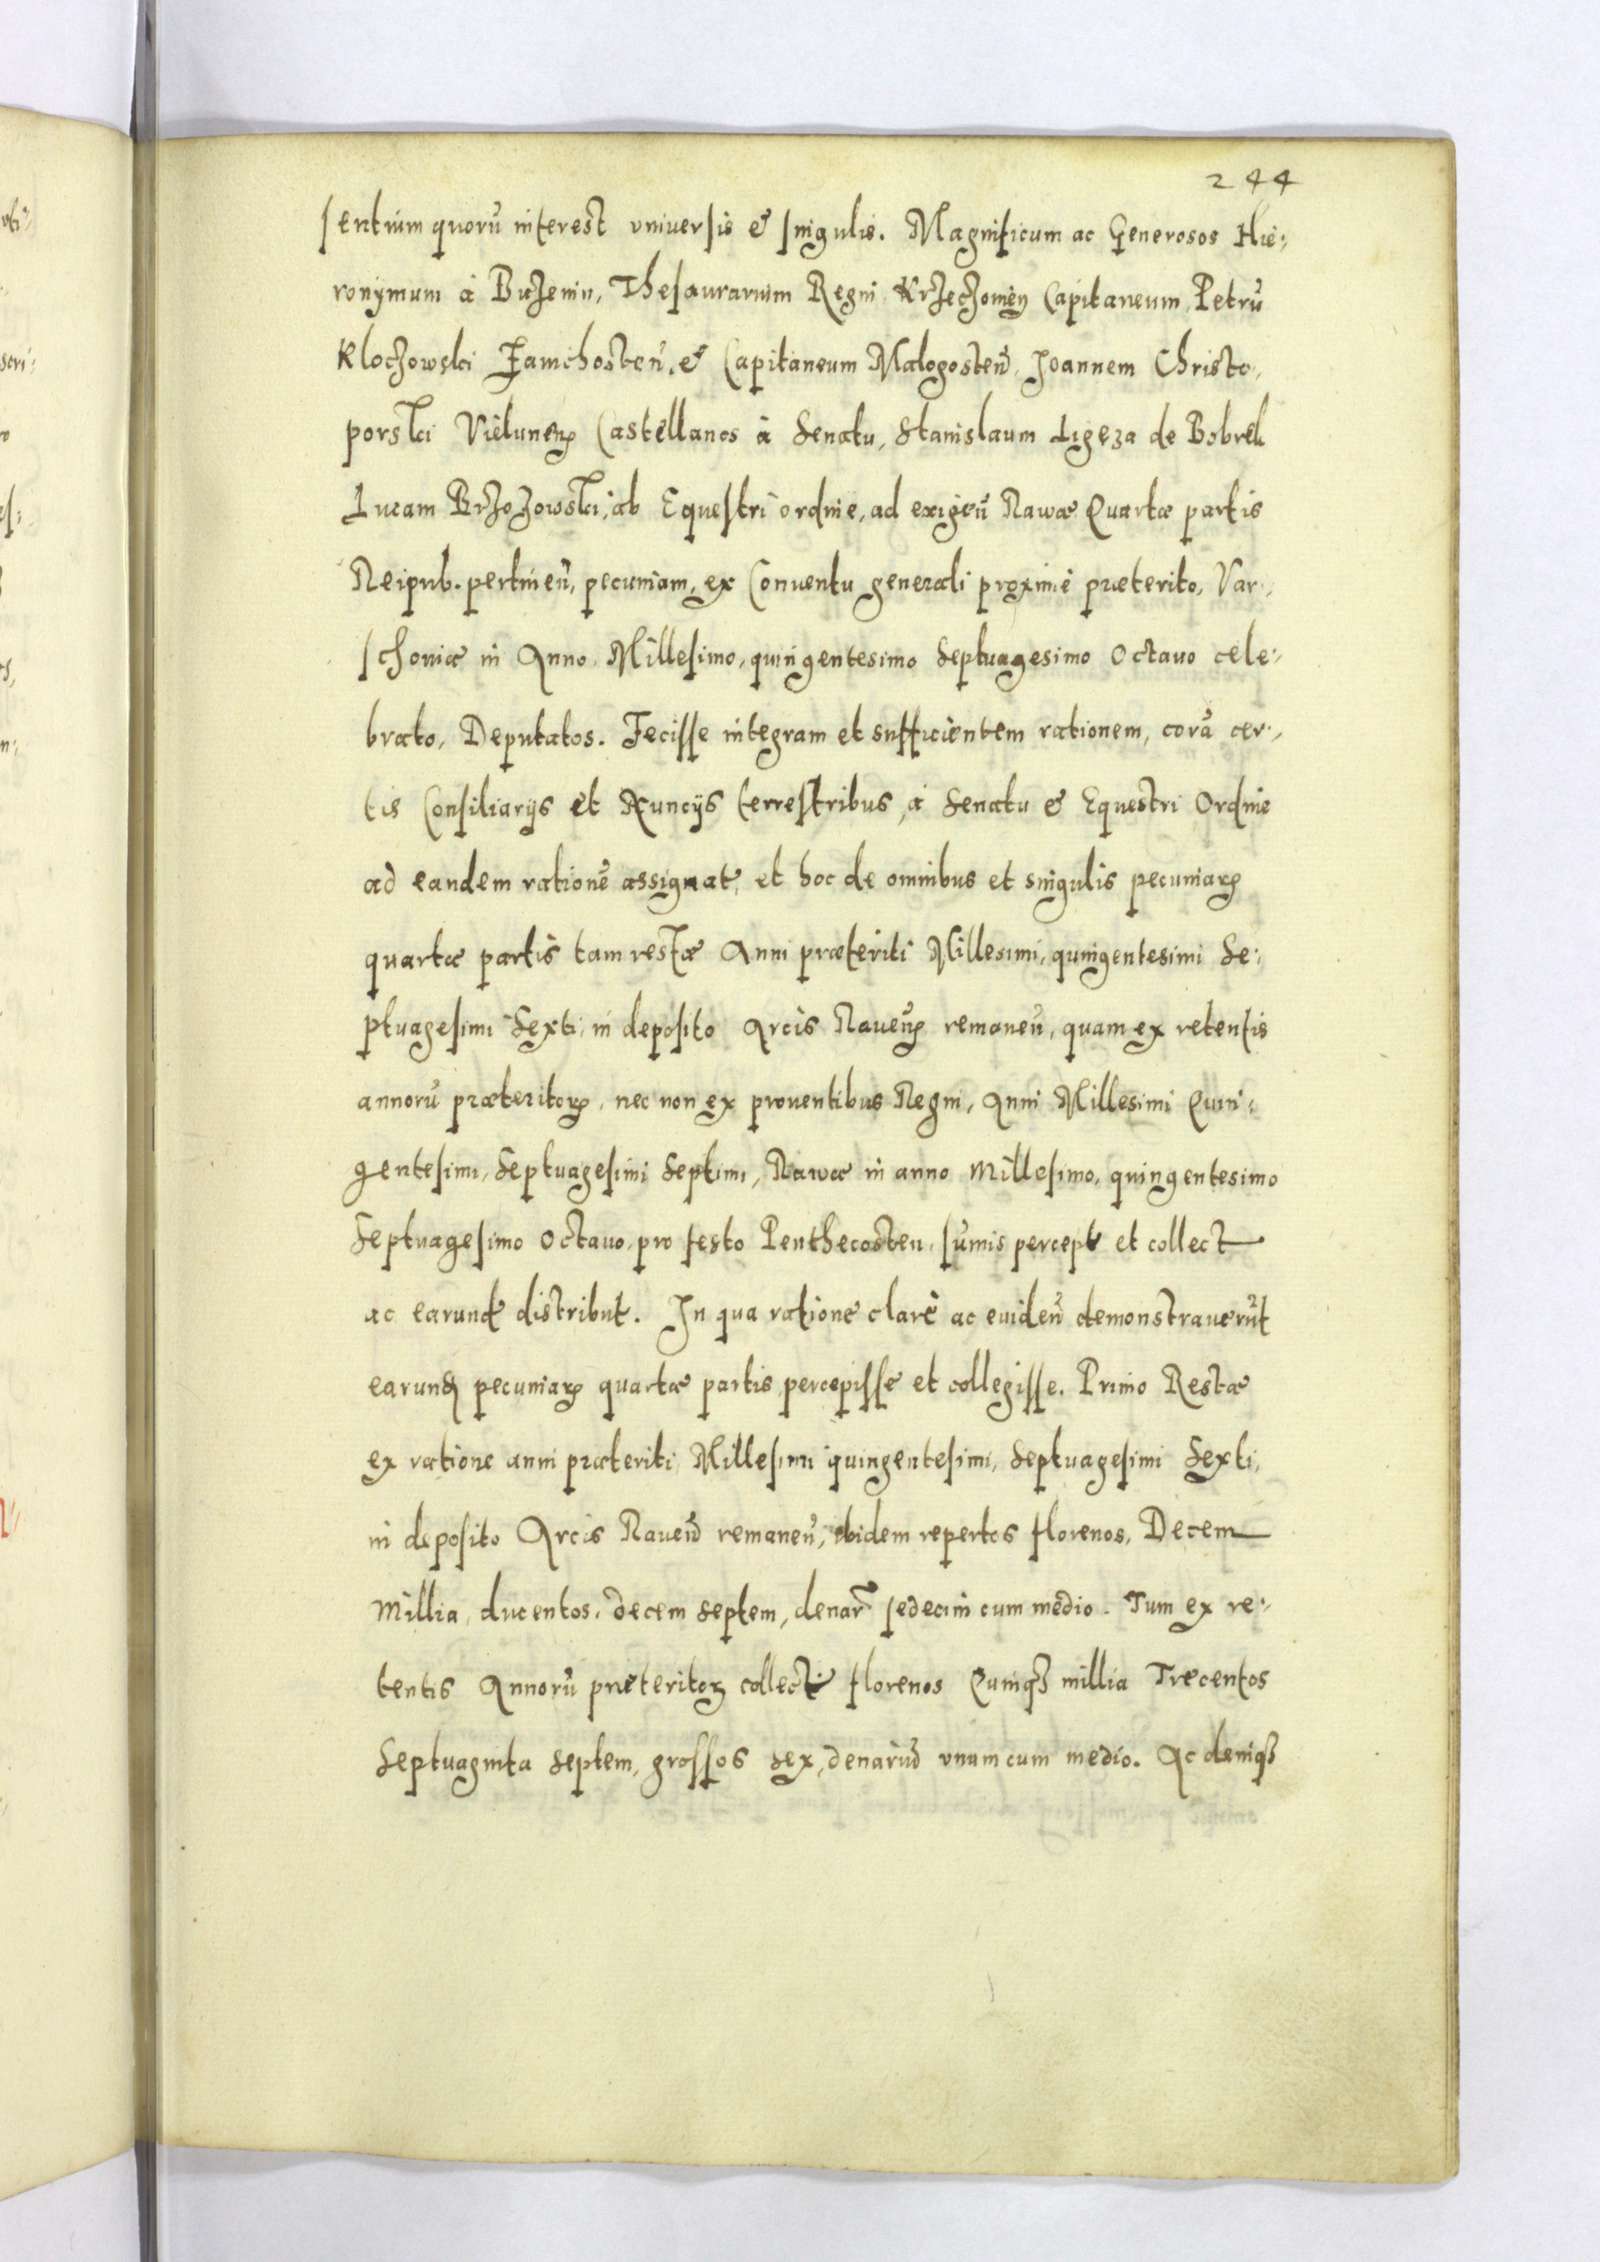 244
sentium quorū interest vniuersis & singulis. Magnificum ac Generosos Hie-
ronymum à Buzenin, Thesaurarium Regni Krzeczouien Capitaneum, Petrū
Kloczowski Zawichosteñ. & Capitaneum Malogosteñ. Joannem Christo-
porski Vieluneñ Castellanos à Senatu, Stanislaum Ligeza de Bobrek
Lucam Brzozowski, ab Equestri ordine, ad exigeñ Rawæ Quartæ partis
Reipub. pertineñ, pecuniam, ex Conuentu generali proximè præterito, Var-
schouiæ in Anno Millesimo, quingentesimo Septuagesimo Octauo cele-
brato, Deputatos. Fecisse integram et sufficientem rationem, corā cer-
tis Consiliarijs et Nuncijs terrestribus, à Senatu & Equestri Ordine
ad eandem rationē assignat, et hoc de omnibus et singulis pecuniarꝝ
quartæ partis tam restæ Anni præteriti Millesimi, quingentesimi Se-
ptuagesimi Sexti, in deposito Arcis Raueñ remaneñ, quam ex retentis
annorū præteritorꝝ, nec non ex prouentibus Regni, Anni Millesimi Quin-
gentesimi, Septuagesimi Septimi, Rawæ in anno Millesimo, quingentesimo
Septuagesimo Octauo, pro festo Penthecosten, sūmis percept et collect
ac earund distribut. In qua ratione clarè ac euideñ demonstrauerūt
earund pecuniarꝝ quartæ partis percepisse et collegisse. Primo Restæ
ex ratione anni præteriti Millesimi quingentesimi, Septuagesimi Sexti,
in deposito Arcis Raueñ remaneñ, ibidem repertos florenos, Decem
Millia, ducentos, decem septem, denar sedecim cum medio. Tum ex re-
tentis Annorū præteritorꝝ collect florenos Quinqꝫ millia Trecentos
Septuaginta septem, grossos sex, denariū vnum cum medio. Ac deniqꝫ